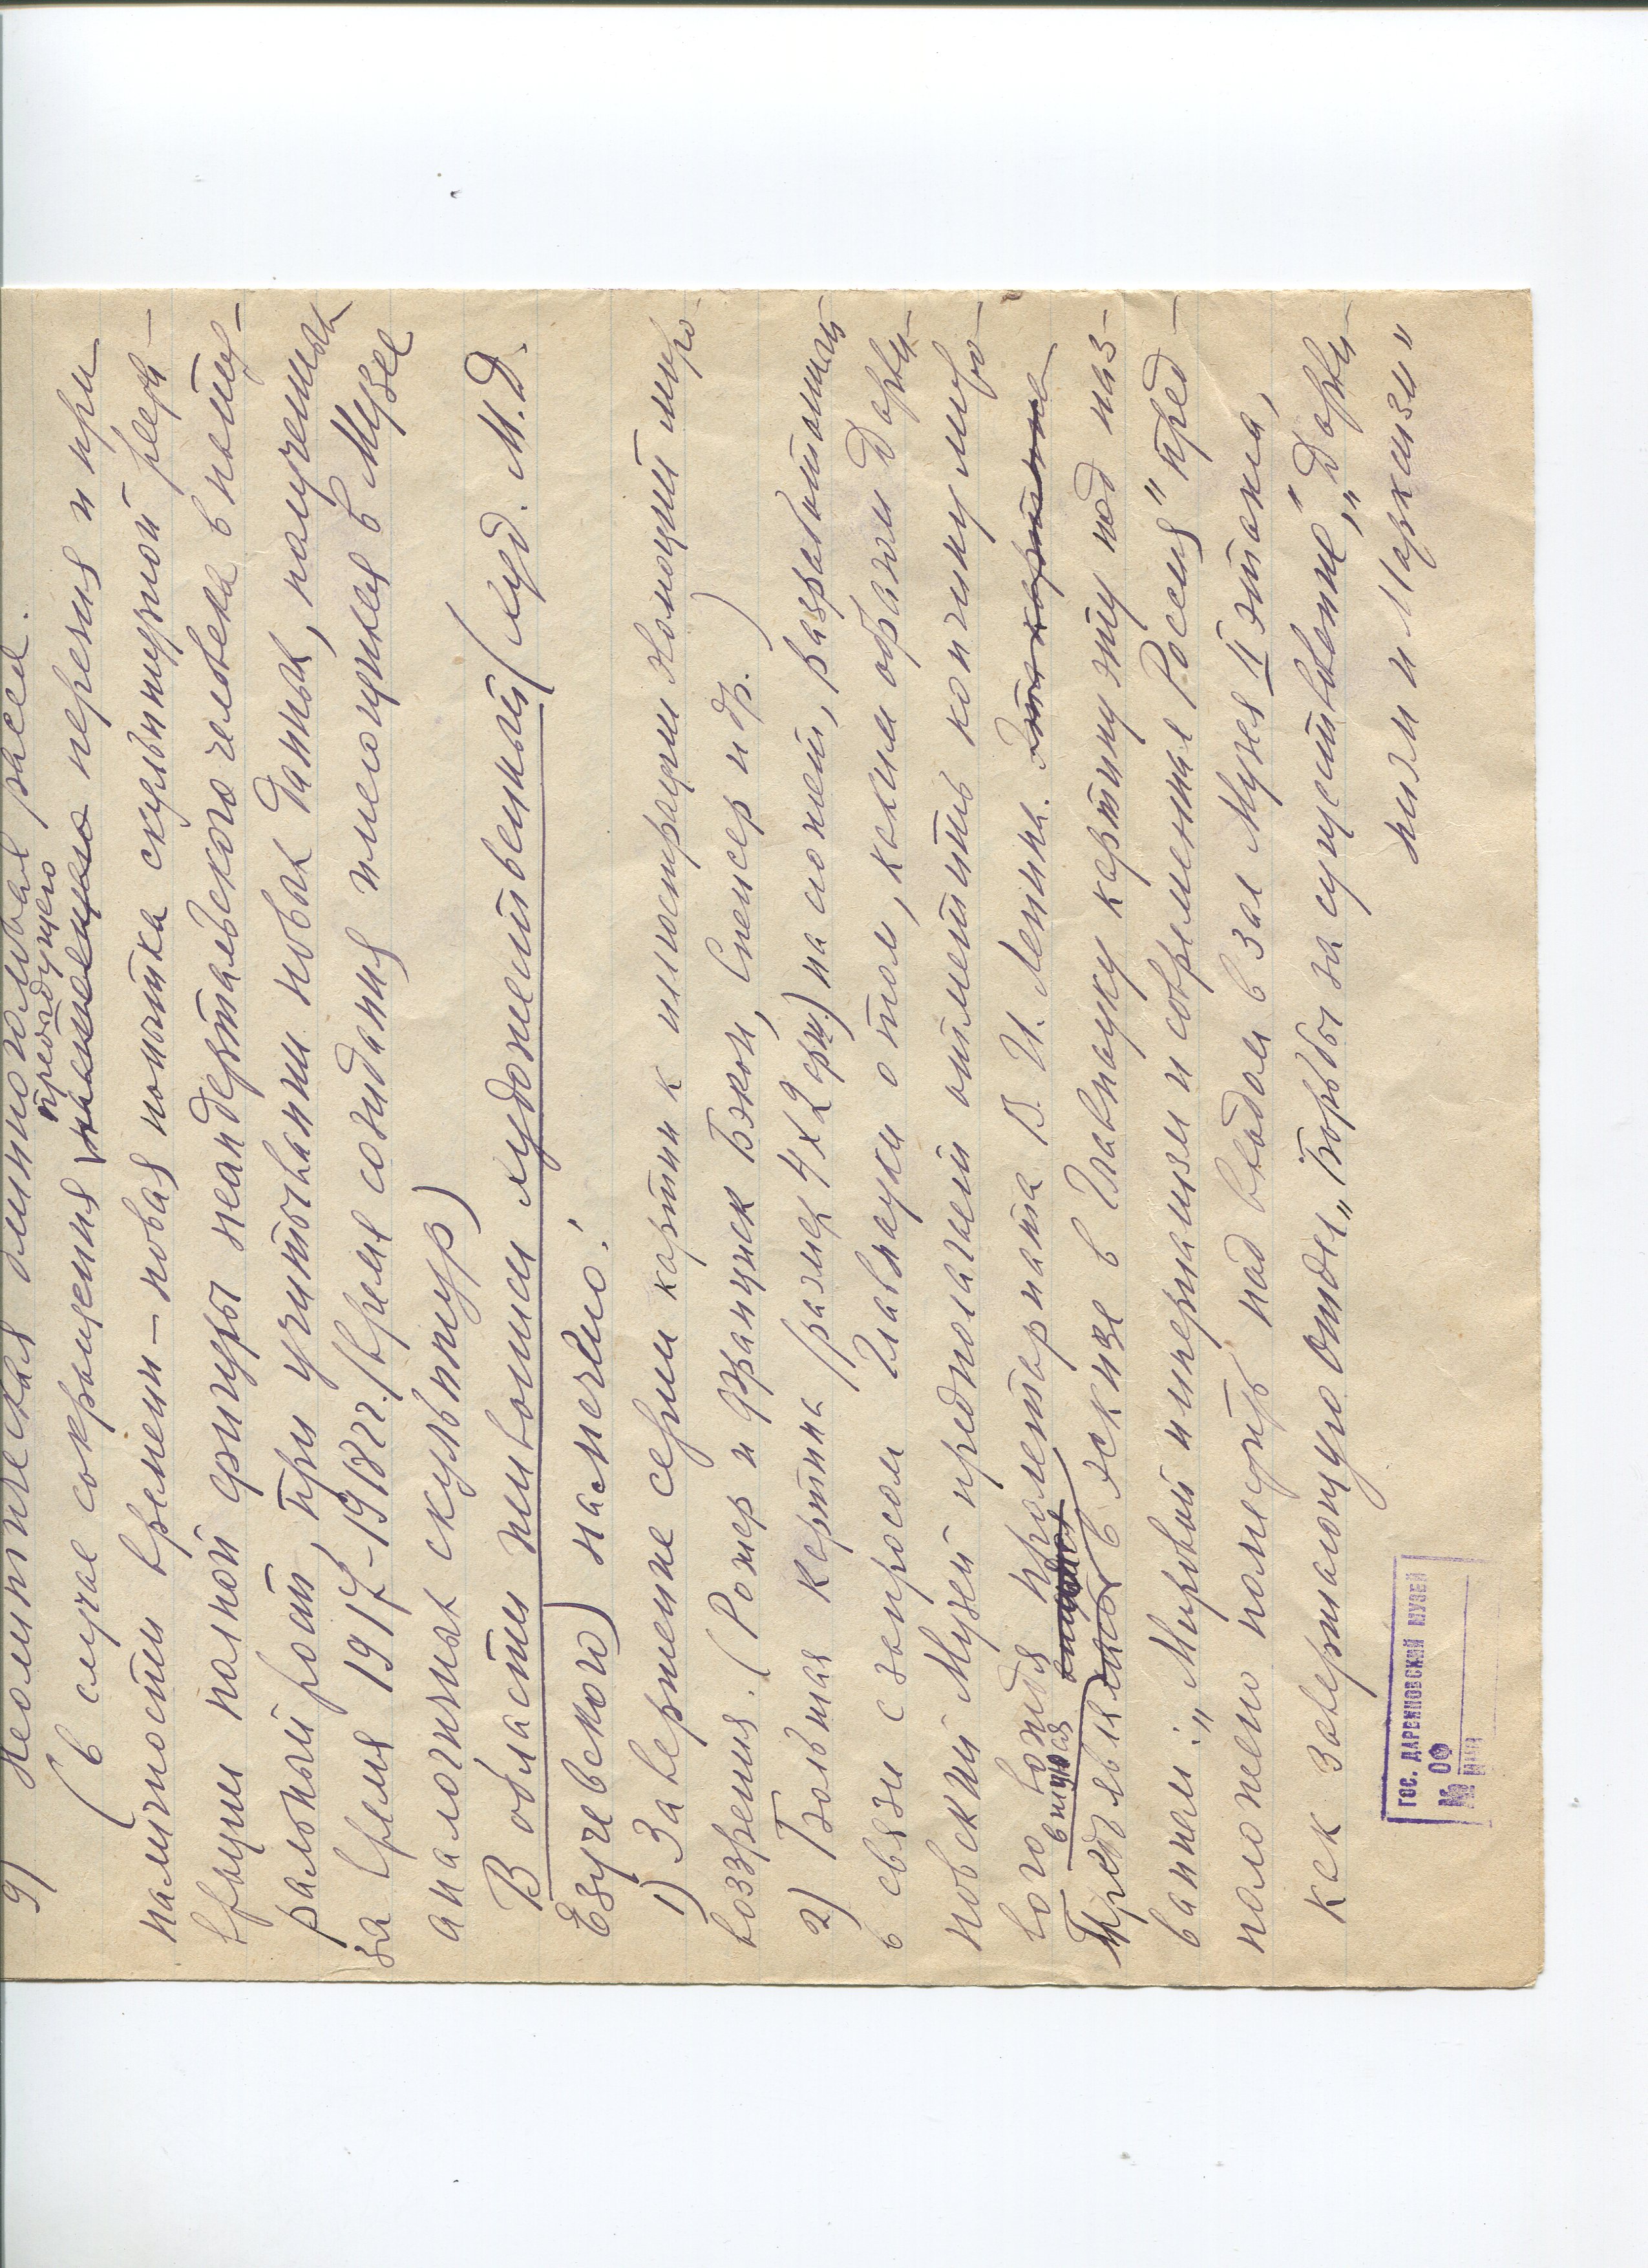 9) Неолитическая длинноголовая раса.
(в случае сокращения предыдущего настоящего перечня и при
наличности времени – новая попытка скульптурной рекон-
струкции полной фигуры неандертальского человека в нату-
ральный рост, при учитывании новых данных, полученных
за время 1917-1918 гг. (время создания имеющихся в Музее
аналогичных скульптур)
В области живописи художественный (худ. М.Д.
Езучевского) намечено:
1) Завершение серии картин к иллюстрации эволюции миро-
воззрения. (Рожер и Франциск Бэкон, Спенсер и др.)
2) Большая картина (размер 4 х 2 арш) на сюжет, разработанный
в связи с запросом Главнауки о том, каким образом Дарви-
новский Музей предполагает отметить кончину миро-
вого вождя пролетариата В. И. Ленина. Эта картина
Представив в эскизе в Главнауку картину эту под наз-
ванием: „Мировой империализм и современная Россия" пред-
положено поместить над входом в зал Музея II этажа,
как завершающую отдел „Борьбы за существование", „Дарви-
низм и Марксизм"
ГОС. ДАРВИНОВСКИЙ МУЗЕЙ
№ ОФ
№